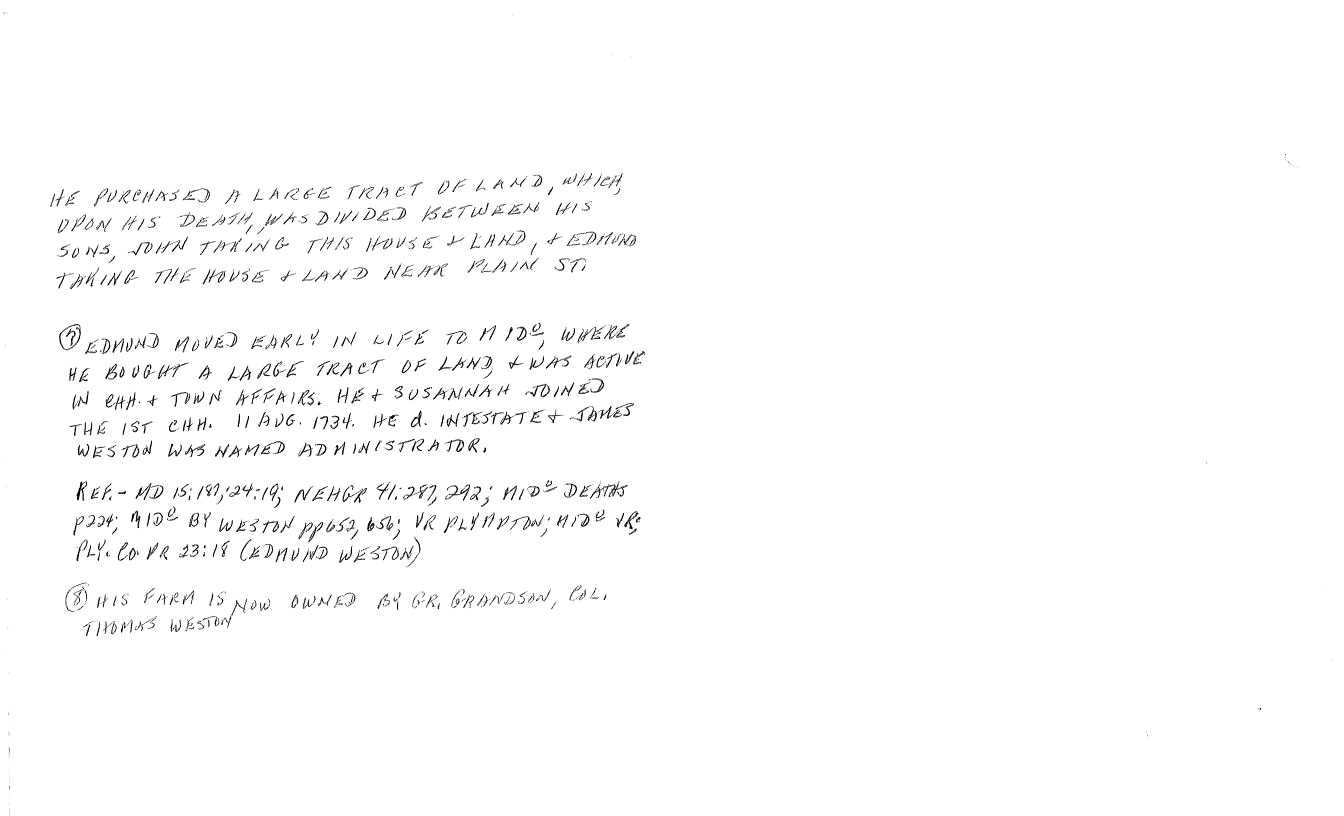 HE PURCHASED A LARGE TRACT OF LAND, WHICH,
UPON HIS DEATH, WAS DIVIDED BETWEEN HIS
SONS, JOHN TAKING THIS HOUSE & LAND, & EDMUND
TAKING THE HOUSE & LAND NEAR PLAIN ST.
⑦ EDMUND MOVED EARLY IN LIFE TO MIDº, WHERE
HE BOUGHT A LARGE TRACT OF LAND, & WAS ACTIVE
IN CHH. & TOWN AFFAIRS. HE & SUSANNAH JOINED
THE 1ST CHH. 11 AUG. 1734. HE d. INTESTATE & JAMES
WESTON WAS NAMED ADMINISTRATOR.
REF.- MD 15:187; 24:19; NEHGR 41:287, 292; MIDº DEATHS
p224; MIDº BY WESTON pp652, 656; VR PLYMPTON; MIDº VR;
PLY. Co. PR 23:18 (EDMUND WESTON)
⑧ HIS FARM IS NOW OWNED BY GR. GRANDSON, COL.
THOMAS WESTON